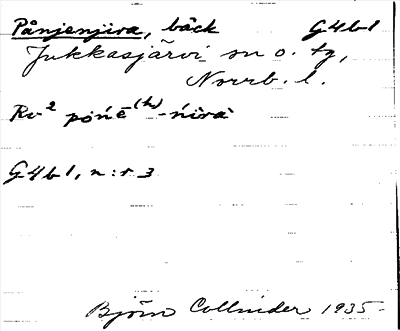 Pånjenjira, bäck G4b1
Jukkasjärvi sn o. tg,
Norrb. l.
Rv² pońē⁽ʰ⁾-ńìrà
G4b1, n:r 3
Björn Collinder 1935